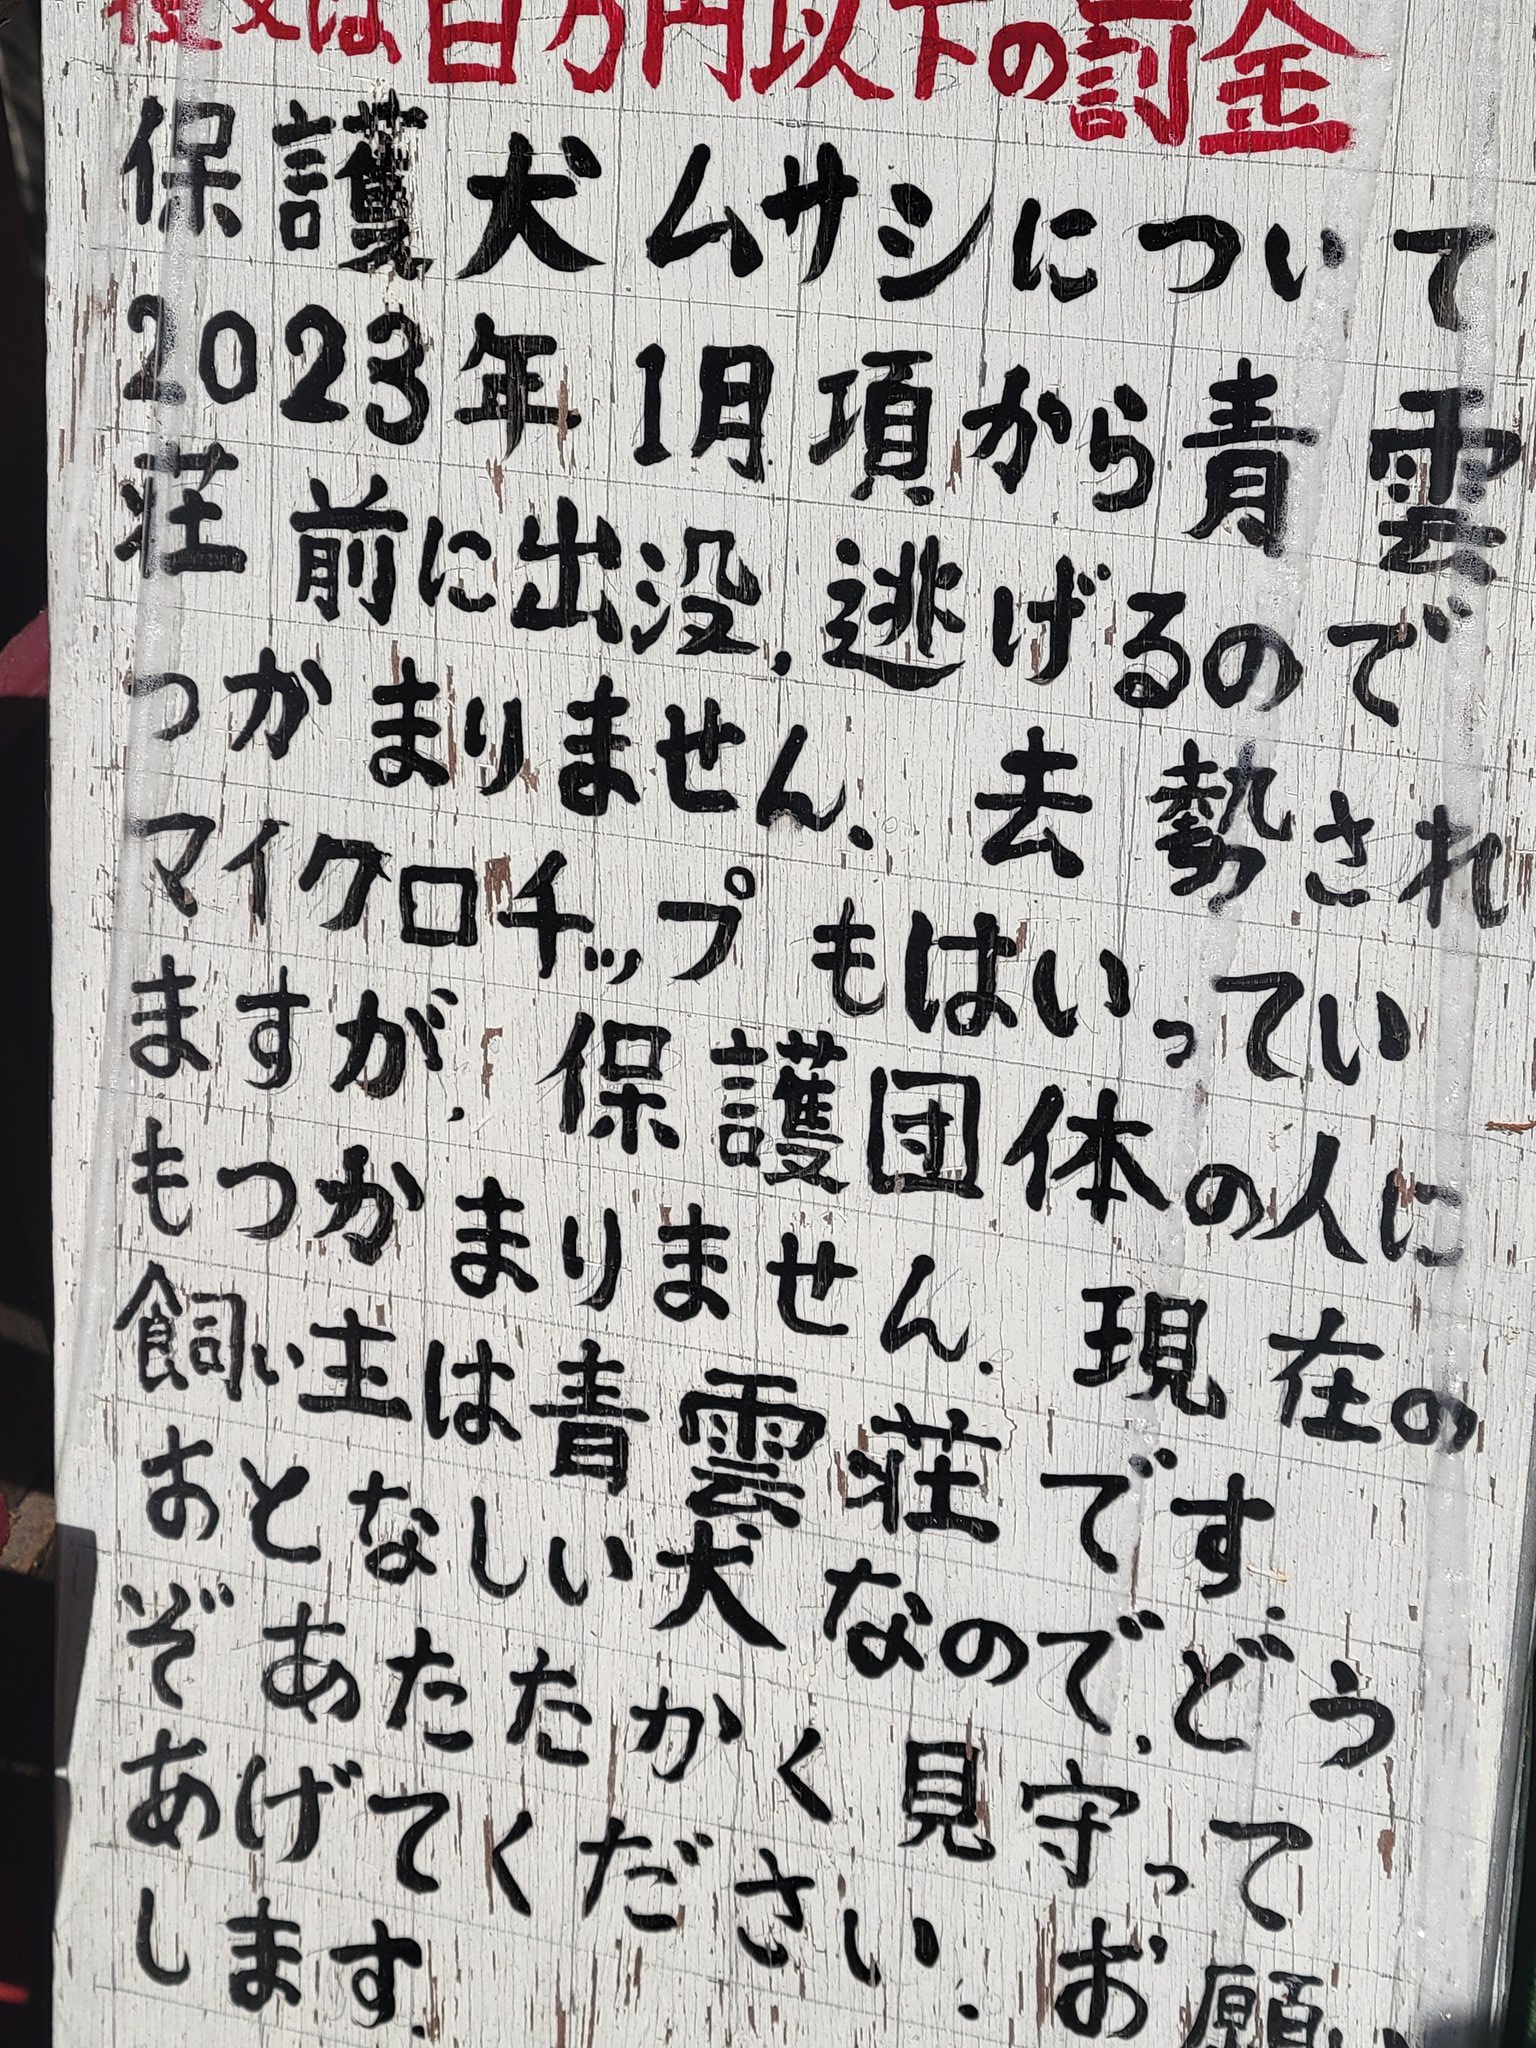 役又は百万円以下の罰金
保護犬ムサシについて
2023年1月項から青雲
荘前に出没.逃げるので
つかまりません.去勢され
マイクロチップもはいってい
ますが,保護団体の人に
もつかまりません.現在の
飼い主は青雲荘です.
おとなしい犬なので,どう
ぞあたたかく見守って
あげてください.お願い
します.